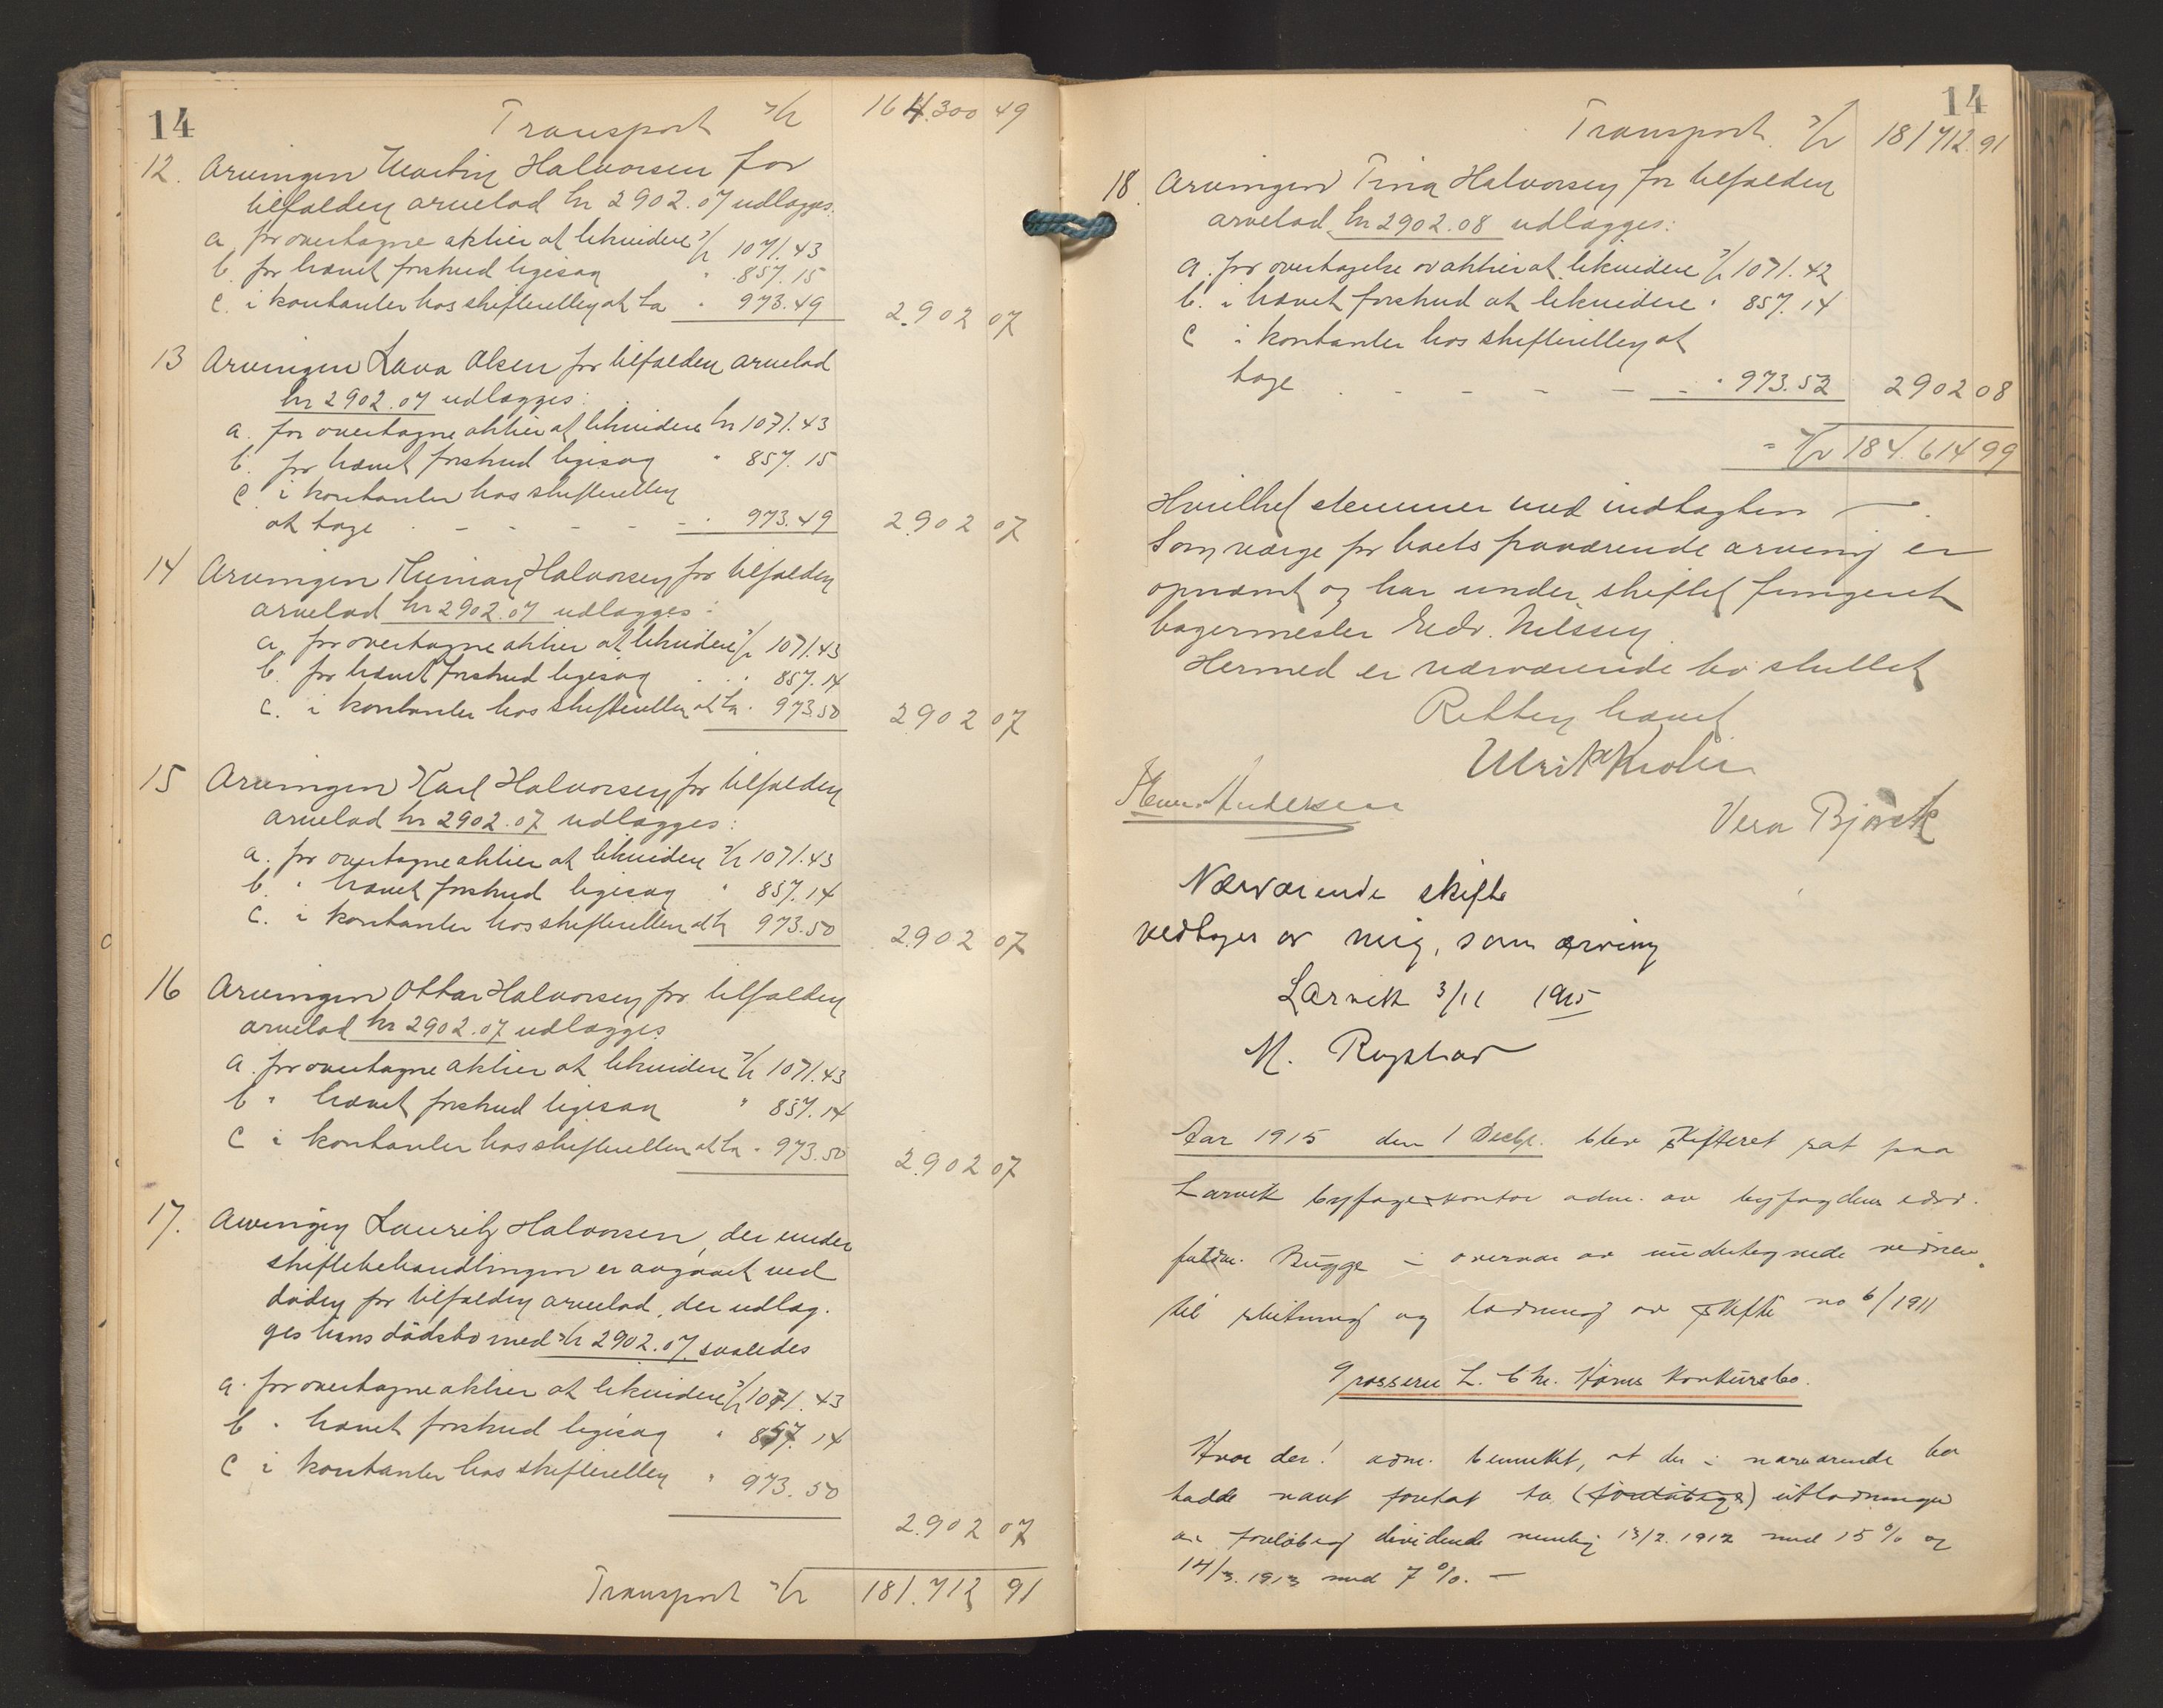 14
Transport Kr 164.300 49
12. Arvingen Martin Halvorsen for
tilfalden arvelod kr 2902.07 udlægges:
a. for overtagne aktier at likvidere Kr 1071.43
b. for hævet forskud ligesaa " 857.15
c. i kontanter hos skifteretten at ta " 973.49 2.902 07
13 Arvingen Lava Olsen for tilfalden arvelod
kr 2902.07 udlægges:
a. for overtagne aktier at likvidere kr 1071.43
b. for hævet forskud ligesaa " 857.15
c. i kontanter hos skifteretten
at tage - - - - - 973.49 2.902 07
14 Arvingen Halvorsen for tilfalden
arvelod kr 2902.07 udlægges:
a. for overtagne aktier at likvidere Kr 1071.43
b. for hævet forskud ligesaa . . . 857.14
c. i kontanter hos skifteretten at ta . 973.50 2902 07
15 Arvingen Karl Halvorsen for tilfalden
arvelod kr 2902.07 udlægges:
a. for overtagne aktier at likvidere Kr 1071.43
b. " hævet forskud ligesaa " 857.14
c. i kontanter hos skifteretten at ta 973.50 2.902 07
16 Arvingen Ottar Halvorsen for tilfalden
arvelod kr 2902.07 udlægges
a. for overtagne aktier at likvidere Kr 1071.43
b " hævet forskud ligesaa " 857.14
c i kontanter hos skifteretten at ta . 973.50 2.902 07
17. Arvingen Lauritz Halvorsen, der under
skiftebehandlingen er avgaaet ved
døden for tilfalden arvelod, der udlæg-
ges hans dødsbo med Kr 2902.07 saaledes
a. for overtagne aktier at likvidere Kr 1071.43
b " hævet forskud ligesaa " 857.14
c i kontanter hos skifteretten " 973.50
2.902 07
Transport Kr 181.712 91
14
Transport. Kr 181712.91
18. Arvingen Tina Halvorsen for tilfalden
arvelod kr 2902.08 udlægges:
a. for overtagelse av aktier at likvidere Kr 1071.42
b. i hævet forskud at likvidere " 857.14
c i kontanter hos skifteretten at
tage . - - - - - " 973.52 2902 08
= Kr 184.614 99
Hvilket stemmer med indtægten —
Som værge for boets fraværende arving er
opnævnt og har under skiftet fungeret
bagermester Edv. Nilssen.
Hermed er nærværende bo sluttet
Retten hævet
Ulrik Krohn
Hans Andersen
Vera Bjørck
Nærværende skifte
vedtages av mig, som arving
Larvik 3/11 1915
M.
Aar 1915 den 1 Decbr. blev skifteret sat paa
Larvik byfogedkontor adm. av byfogdens edsv.
fuldm. Bugge i overvær av undertegnede vidner
til slutning og lodning av skifte no 6/1911
Grosserer L. Chr. Holms Konkursbo.
Hvor da! adm. bemerket, at der i nærværende bo
hadde vært foretat to (foreløbige) utlodninger
av foreløbig dividende nemlig 13/2. 1912 med 15 % og
14/3. 1913 med 7 %. —